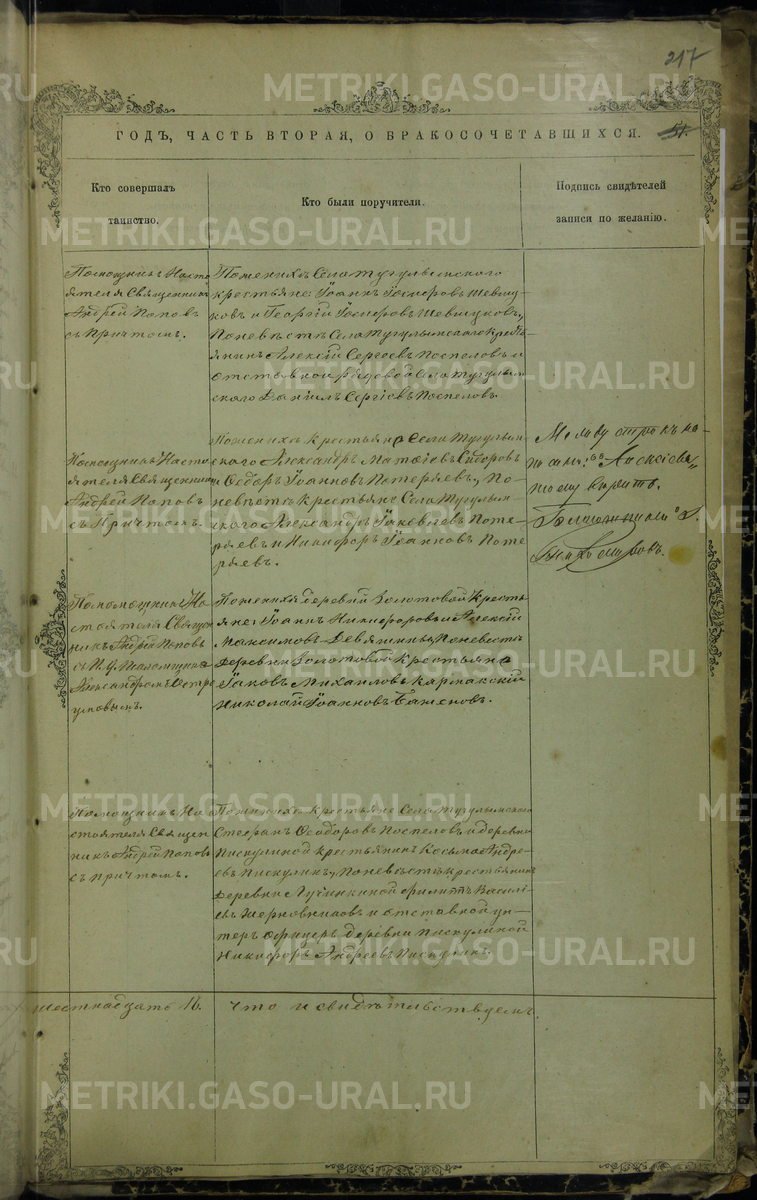 217
ГОДЪ, ЧАСТЬ ВТОРАЯ, О БРАКОСОЧЕТАВШИХСЯ.
51.
Кто совершалъ
таинство.
Кто были поручители.
Подпись свидѣтелей
записи по желанію.
Помощникъ Насто
ятеля Священникъ
Андрей Поповъ
съ Причтомъ.
По женихѣ Села Тугулымскаго
крестьяне: Іоаннъ Іосифовъ Шевцу
ковъ и Георгій Іосифовъ Шевцуковъ,
По невѣстѣ Села Тугулымскаго Кресть
янинъ Алексій Сергѣевъ Поспеловъ и
отставной рядовой Села Тугулым
скаго Даніилъ Сергіевъ Поспеловъ.
Помощникъ Насто
ятеля Священникъ
Андрей Поповъ
съ Причтомъ.
По женихѣ крестьяне Села Тугулым
скаго Александръ Матѳіевъ Сидоровъ
и Ѳедоръ Іоанновъ Потеряевъ, По
невѣстѣ крестьяне Села Тугулым
скаго Александръ Іаковлевъ Поте
ряевъ и Никифоръ Іоанновъ Поте
ряевъ.
Между строкъ на
писанному "Алексіева"
вѣрить.
Благочинный
Помощникъ На
стоятеля Священ
никъ Андрей Поповъ
съ
Александромъ Остро
умовымъ.
По женихѣ деревни Золотовой Кресть
яне: Іоаннъ Никифоровъ и Алексій
Максимовъ Девяшины, По невѣстѣ
деревни Золотовой крестьяне
Іаковъ Михаиловъ Кармакскій
Николай Іоанновъ Баженовъ.
Помощникъ На
стоятеля Священ
никъ Андрей Поповъ
съ причтомъ.
По женихѣ крестьяне Села Тугулымскаго
Стефанъ Ѳеодоровъ Поспеловъ и деревни
Пискулиной крестьянинъ Косьма Андре
евъ Пискулинъ, По невѣстѣ крестьянинъ
деревни Лучинкиной Филиппъ Василі
евъ и отставной ун
теръ офицеръ деревни Пискулиной
Никифоръ Андреевъ Пискулинъ.
шестнадцать 16.
что и свидѣтельствуемъ.
METRIKI.GASO-URAL.RU